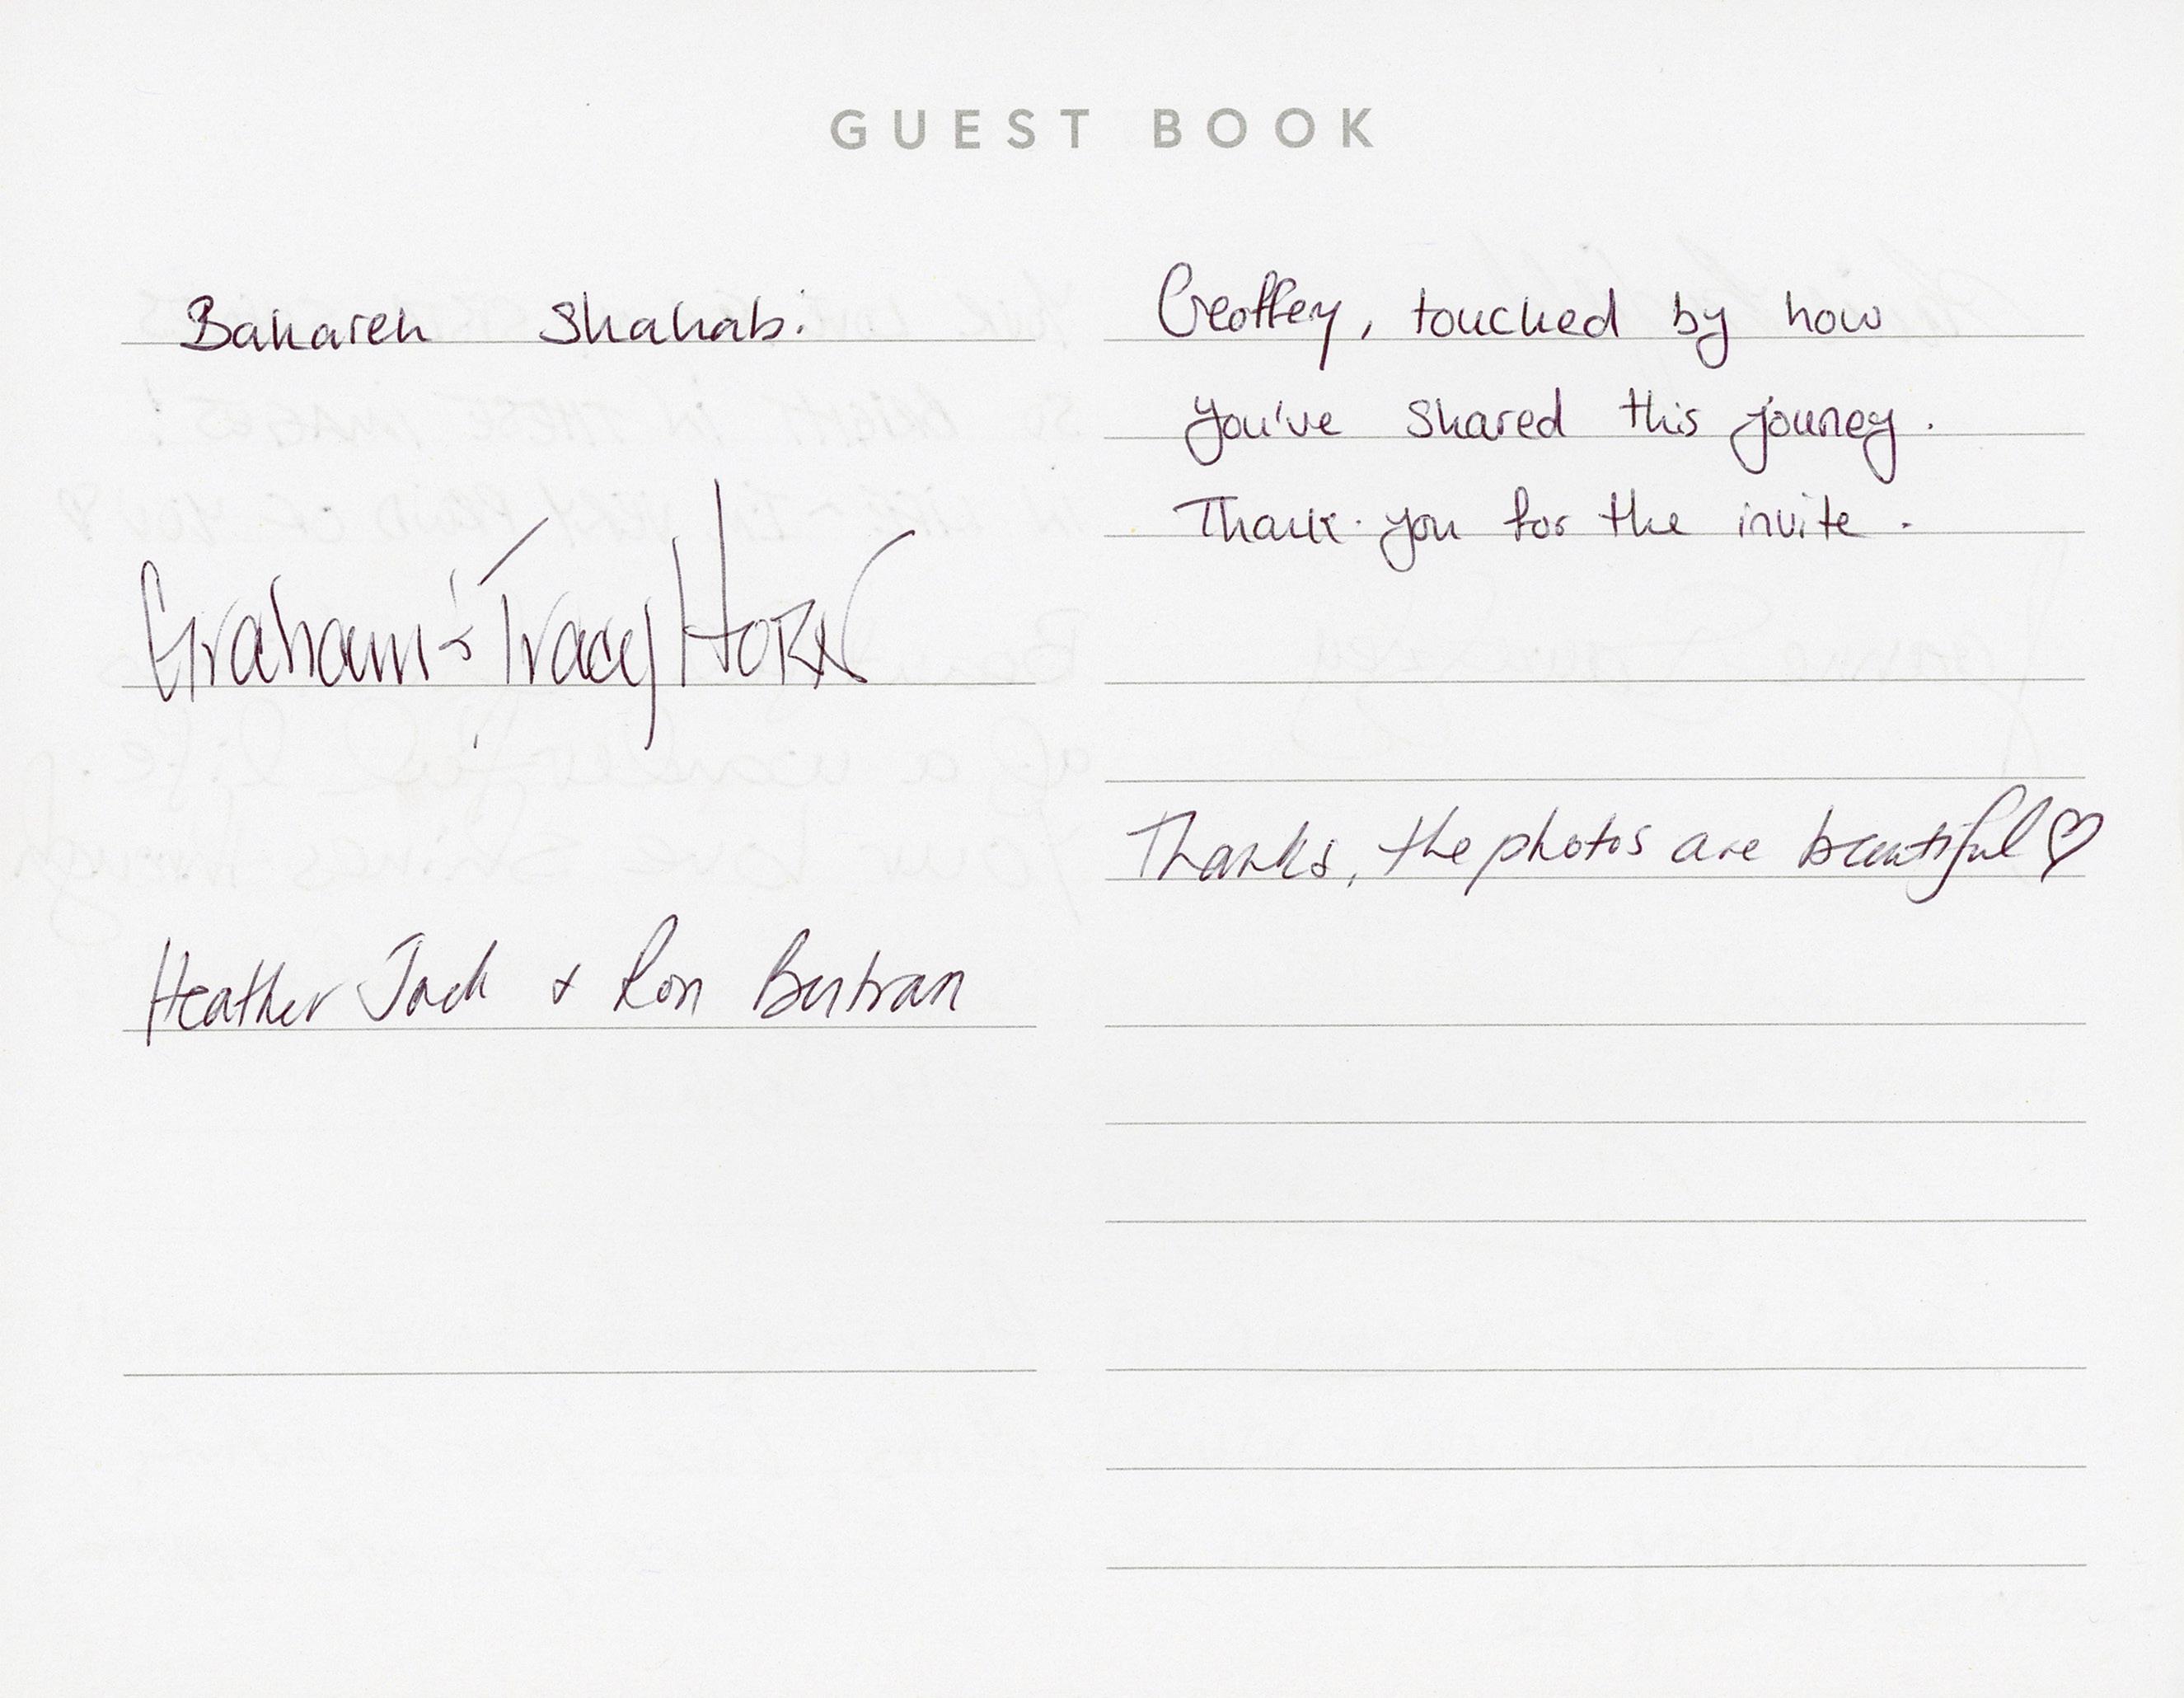 GUEST BOOK
Bahareh Shahabi
Geoffey, touched by how
you've shared this jouney.
Thank you for the invite.
Graham & Tracy HORN
Thanks, the photos are beautiful ♡
Heather Jack & Ron Bertran